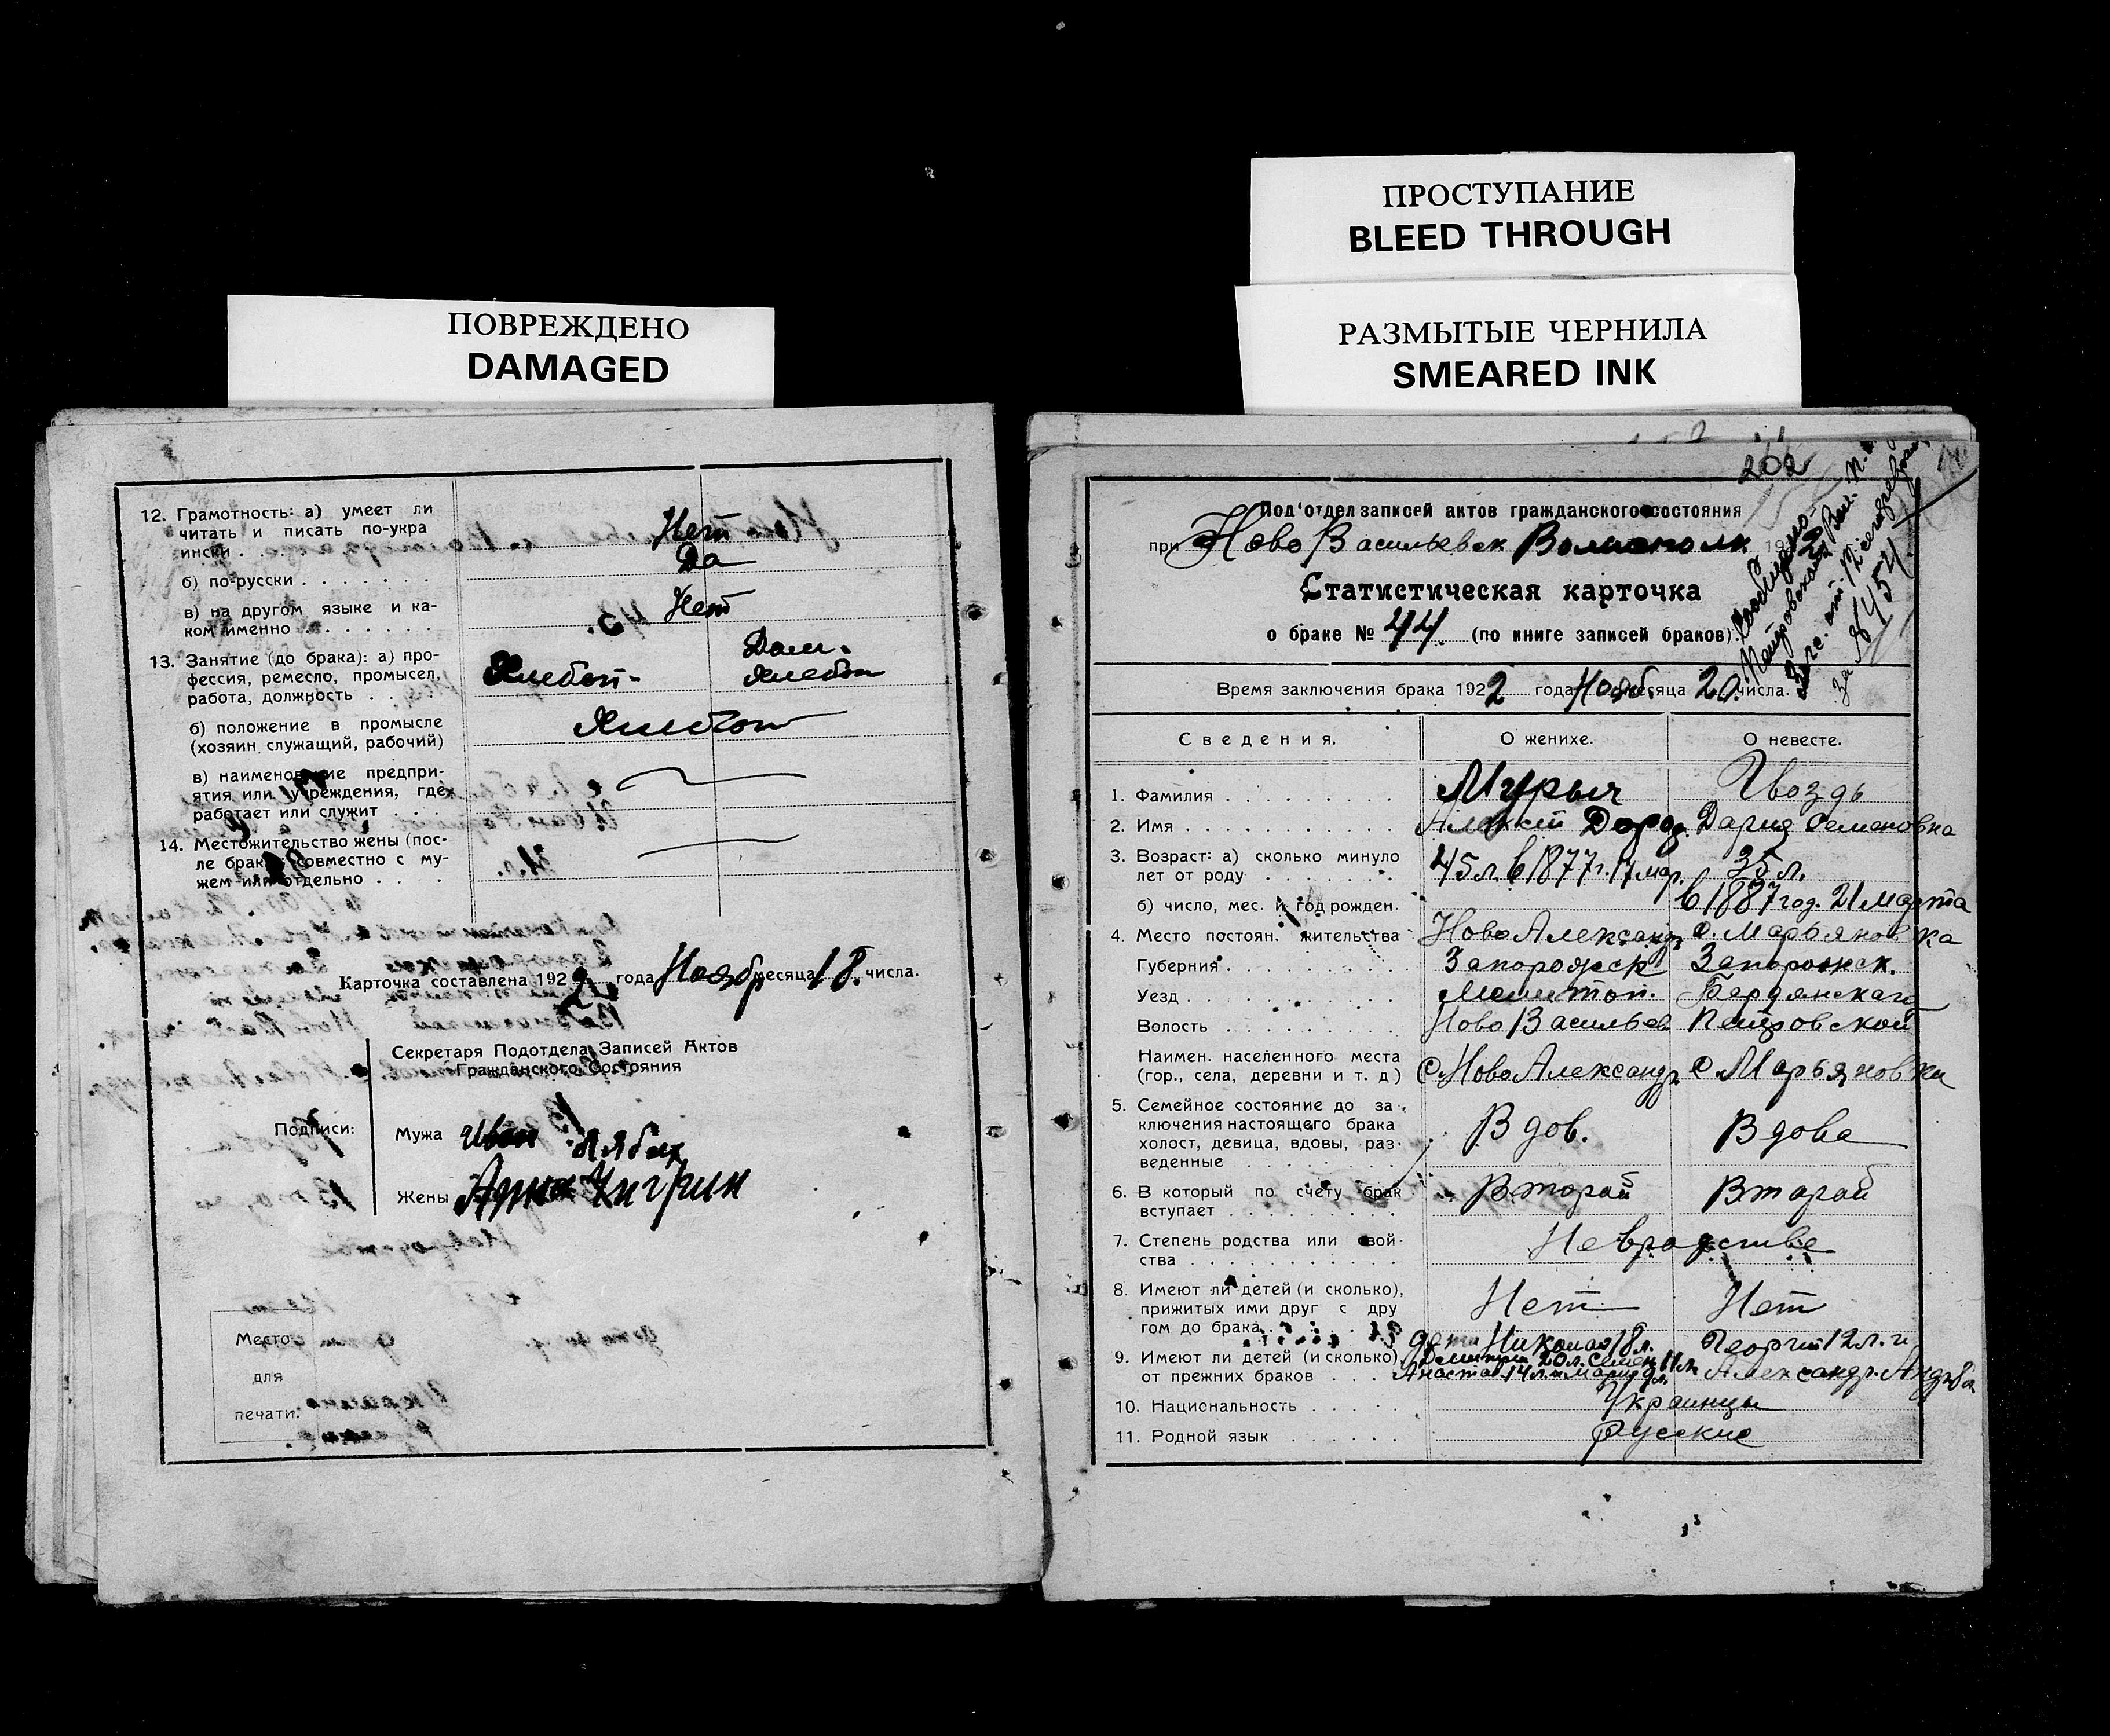 ПОВРЕЖДЕНО
DAMAGED
12. Грамотность: а) умеет ли
читать и писать по-укра
ински . . Нет
б) по-русски . . . . . . . Да
в) на другом языке и ка-
ком именно . . . . . . . Нет
13. Занятие (до брака): а) про-
фессия, ремесло, промысел,
работа, должность . . . Хлебоп- Дом. Хлебоп
б) положение в промысле
(хозяин, служащий, рабочий) Хлебоп
в) наименование предпри-
ятия или учреждения, где
работает или служит . . .
14. Местожительство жены (пос-
ле брака) совместно с му-
жем или отдельно . . . .
Карточка составлена 1922 года Ноябр месяца 18. числа.
Секретаря Подотдела Записей Актов
Гражданского Состояния
Подписи:
Мужа Иван Лябах
Жены Чигрин
Место
для
печати.
ПРОСТУПАНИЕ
BLEED THROUGH
РАЗМЫТЫЕ ЧЕРНИЛА
SMEARED INK
202
Под'отдел записей актов гражданского состояния
при Ново Васильевск Волисполк 192
Статистическая карточка
о браке № 44 (по книге записей браков).
Сообщено
Петровской Вол.
за № 454
Время заключения брака 1922 года Нояб. месяца 20. числа.
Сведения. О женихе. О невесте.
1. Фамилия . . . . . . . . . Мурыч Гвоздь
2. Имя . . . . . . . . . . . Алексей Дороф. Дария Семеновна
3. Возраст: а) сколько минуло
лет от роду . . . . . . . 45 л. в 1877 г. 17 мар. 35 л.
б) число, мес. и год рожден. в 1887 год. 21 марта
4. Место постоян. жительства Ново Александр с. Марьяновка
Губерния . . . . . . . . . Запорожск Запорожск.
Уезд . . . . . . . . . . . Мелитоп. Бердянскаго
Волость . . . . . . . . . Ново Васильев Петровской
Наимен. населенного места
(гор., села, деревни и т. д) с. Ново Александр. с. Марьяновки
5. Семейное состояние до за-
ключения настоящего брака
холост, девица, вдовы, раз-
веденные . . . . . . . . Вдов. Вдова
6. В который по счету брак
вступает . . . . . . . . . Второй Второй
7. Степень родства или свой-
ства . . . . . . . . . . . Невродстве
8. Имеют ли детей (и сколько),
прижитых ими друг с дру
гом до брака . . . . . Нет Нет
дети Николай 18 л. Георгий 12 л. и
9. Имеют ли детей (и сколько) Дмитрий 20 л. Семен 11 л.
от прежних браков . . . Анастас. 14 л. и Мария 9 л. Александр.
10. Национальность . . . . . Украинцы
11. Родной язык . . . . . . Русские